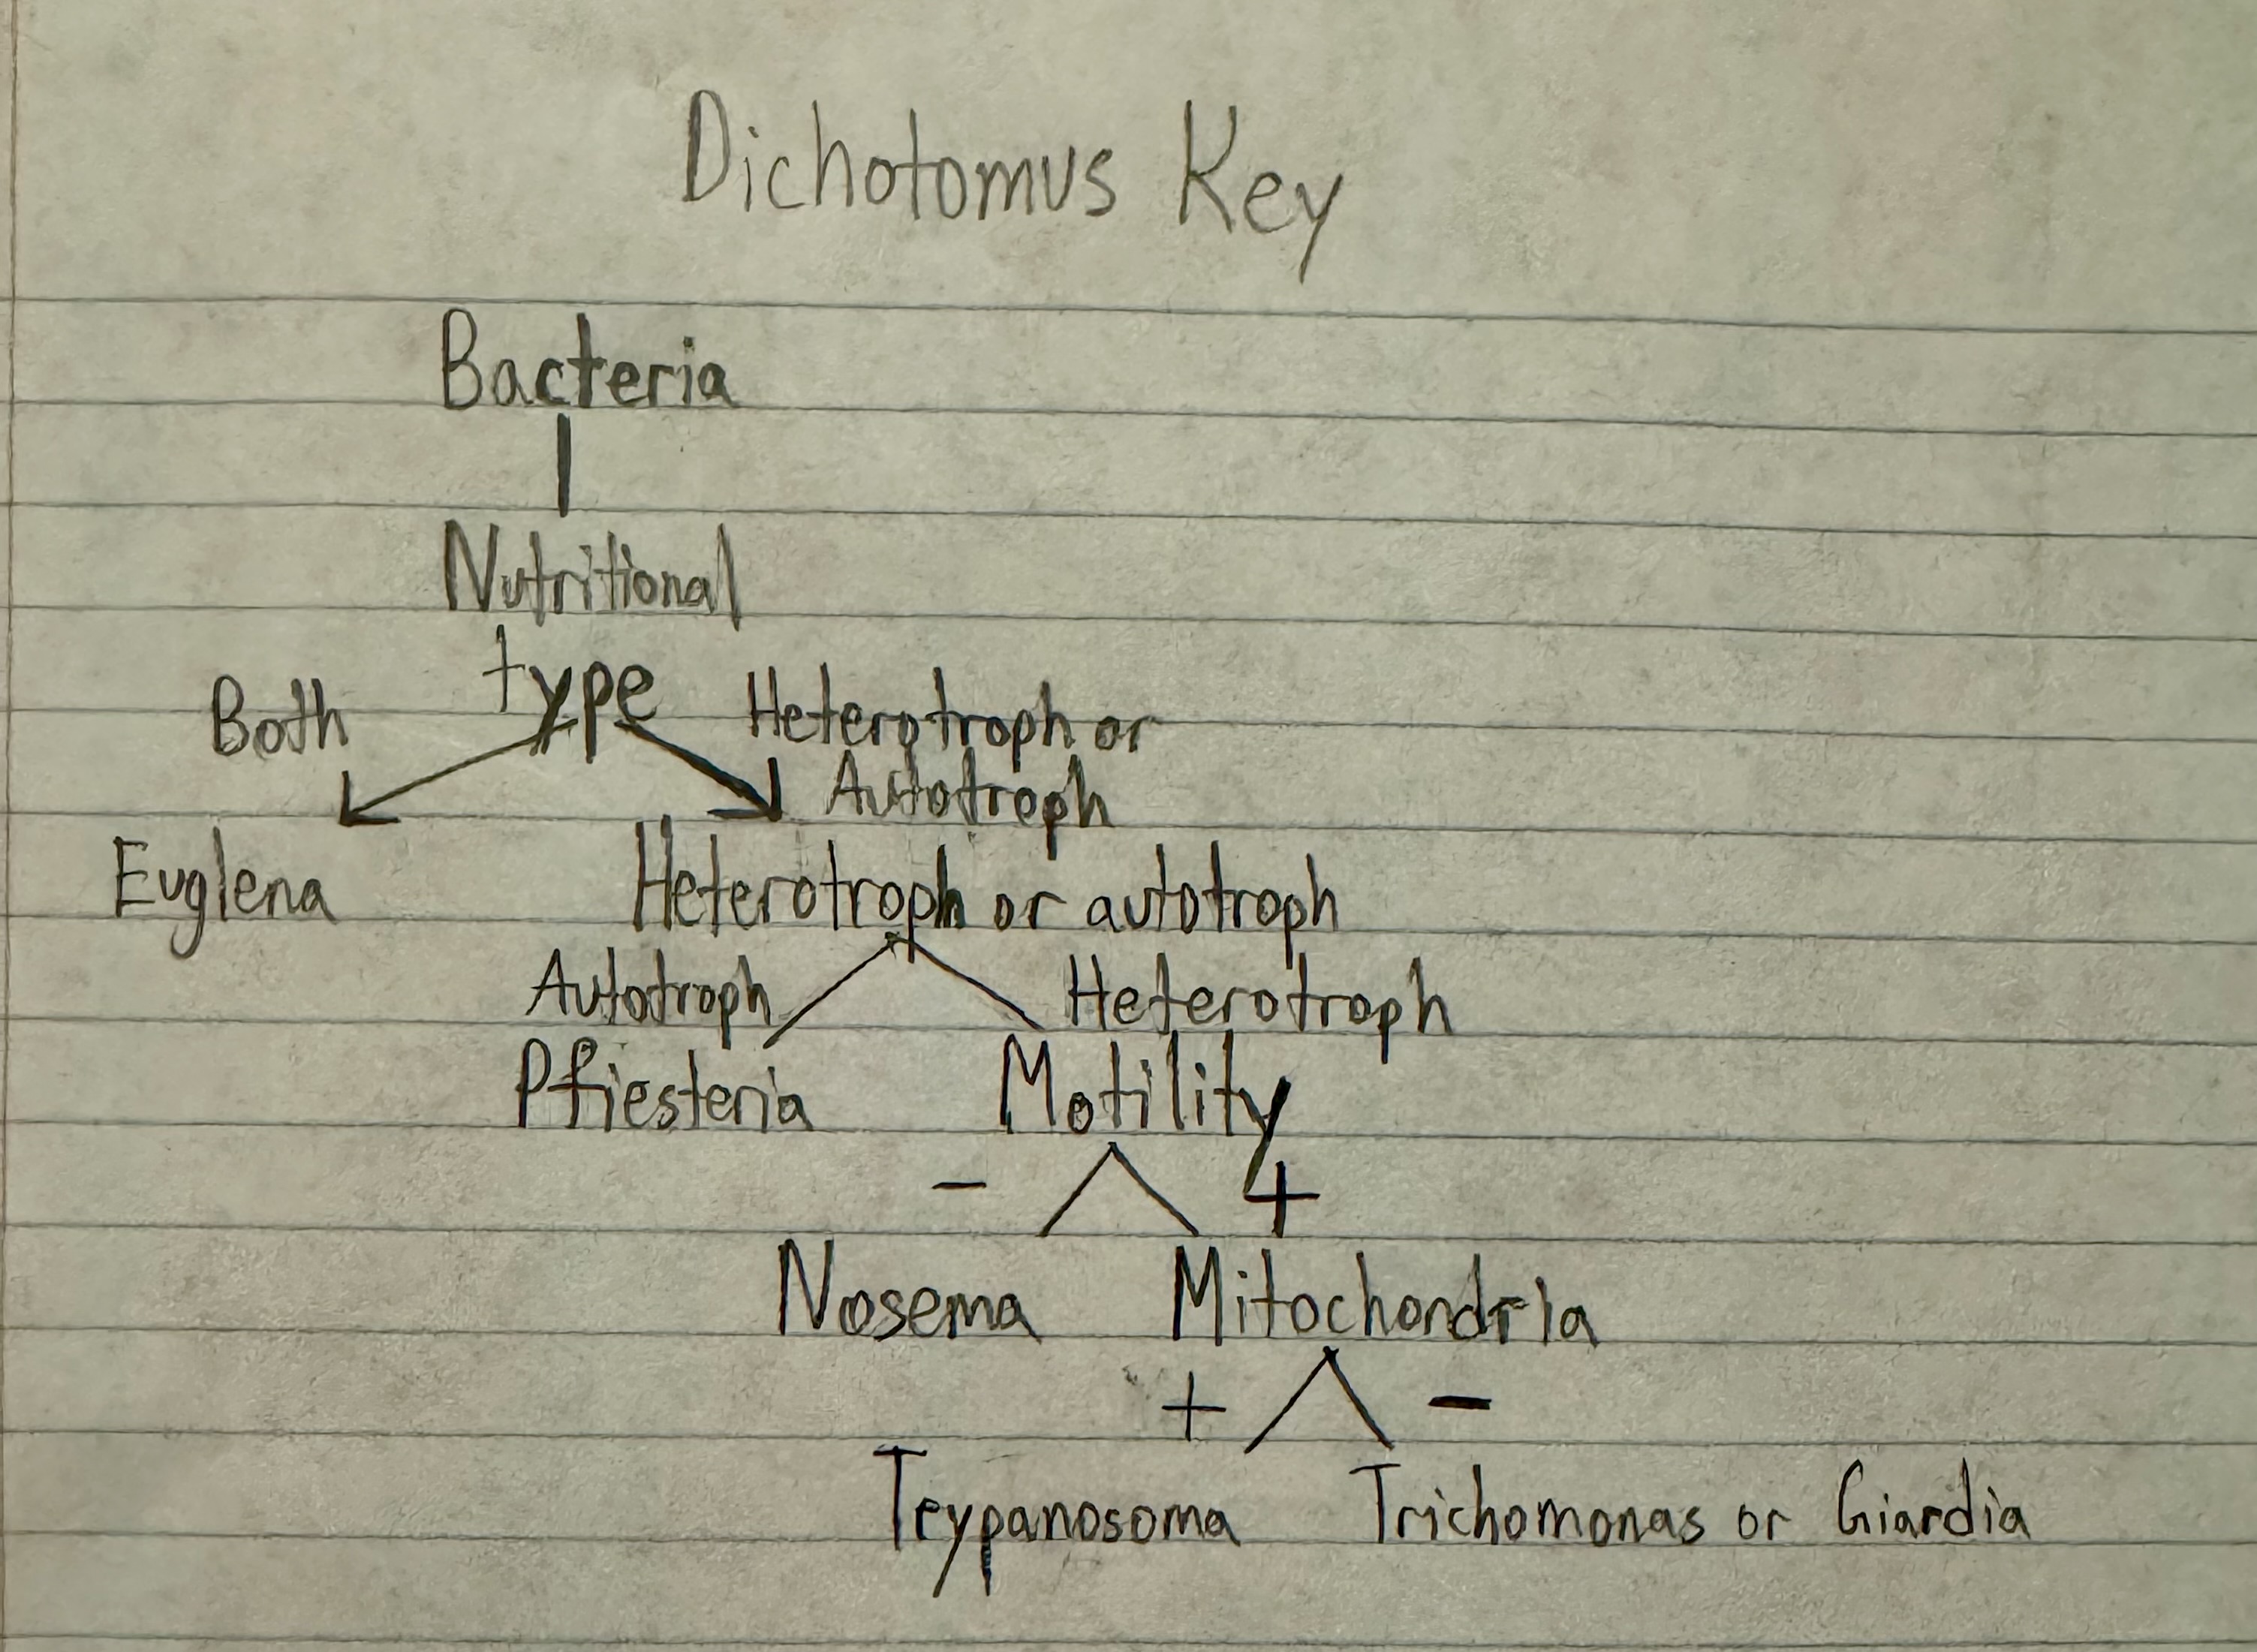 Dichotomus Key
Bacteria
Nutritional
type
Both
Heterotroph or
Autotroph
Euglena
Heterotroph or autotroph
Autotroph
Heterotroph
Pfiesteria
Motility
- +
Nosema
Mitochondria
+ -
Trypanosoma
Trichomonas or Giardia